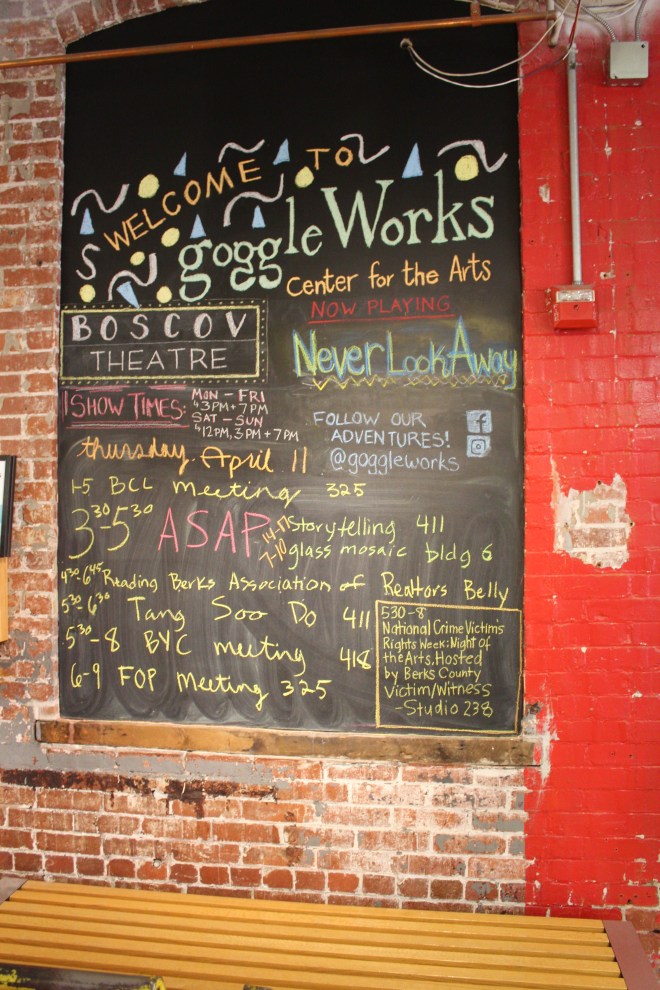 WELCOME TO
goggleWorks
Center for the Arts
NOW PLAYING
BOSCOV
THEATRE
Never Look Away
SHOW TIMES:
MON - FRI
↳ 3PM + 7PM
SAT - SUN
↳ 12PM, 3PM + 7PM
FOLLOW OUR
ADVENTURES!
@goggleworks
f
thursday. April 11
1-5 BCL meeting 325
3:30-5:30 ASAP 11-17 storytelling 411
7-10 glass mosaic bldg 6
4:30-6:45 Reading Berks Association of Realtors Belly
5:30-6:30 Tang Soo Do 411
5:30-8 BYC meeting 418
6-9 FOP meeting 325
530-8
National Crime Victim's
Rights Week: Night of
the Arts, Hosted
by Berks County
Victim/Witness
-Studio 238